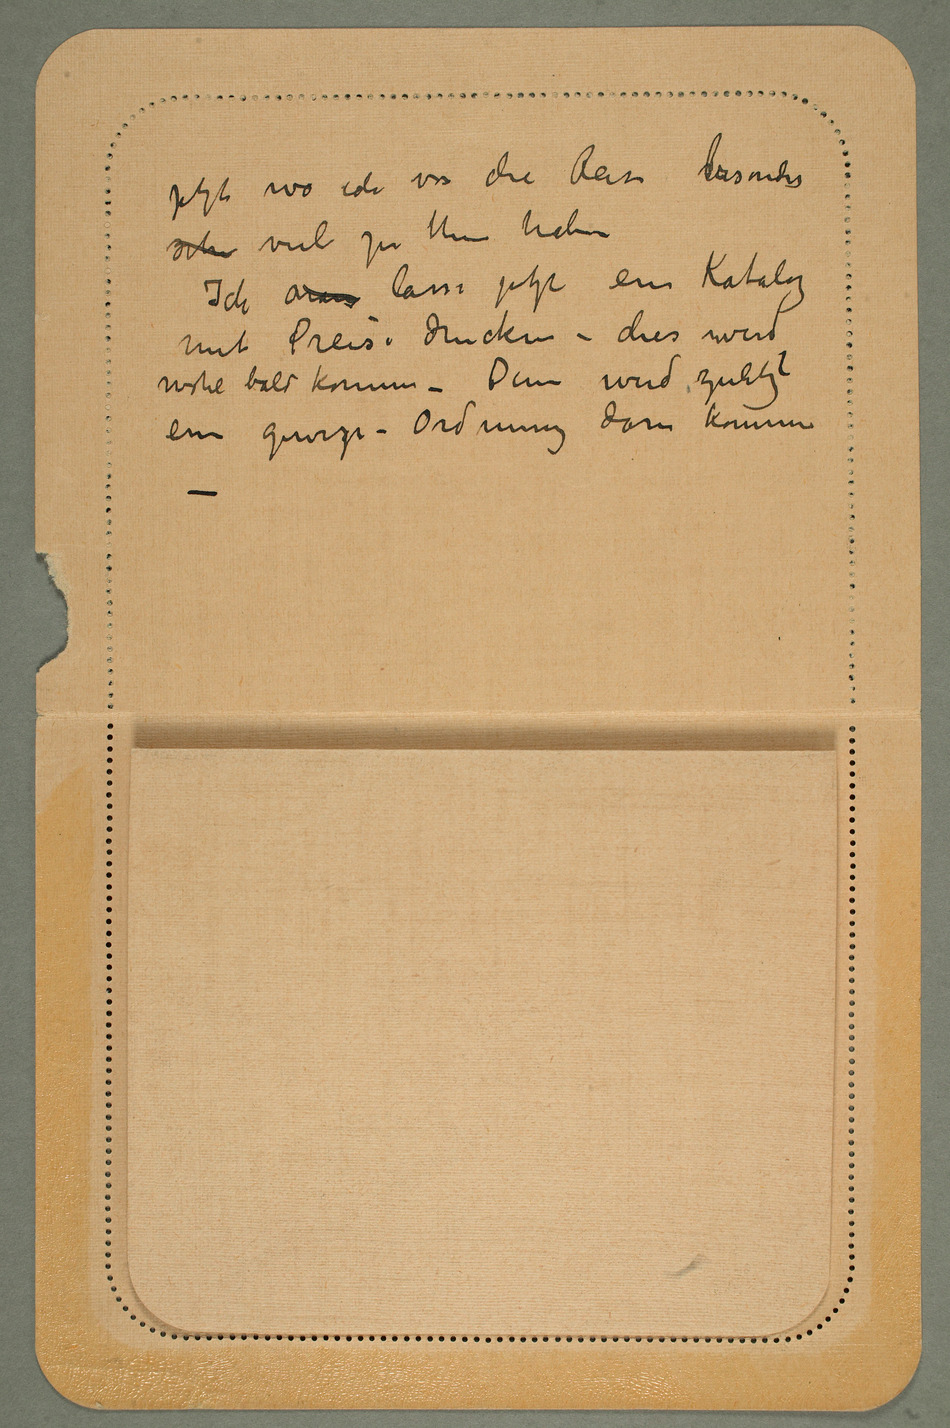 jetzt wo ich vor die Reise besonders
sehr viel zu thun haben
Ich lasse jetzt ein Katalog
mit Preise drucken – dies wird
wohl bald kommen – Denn wird zuletzt
ein gewisse – Ordnung darin kommen
—